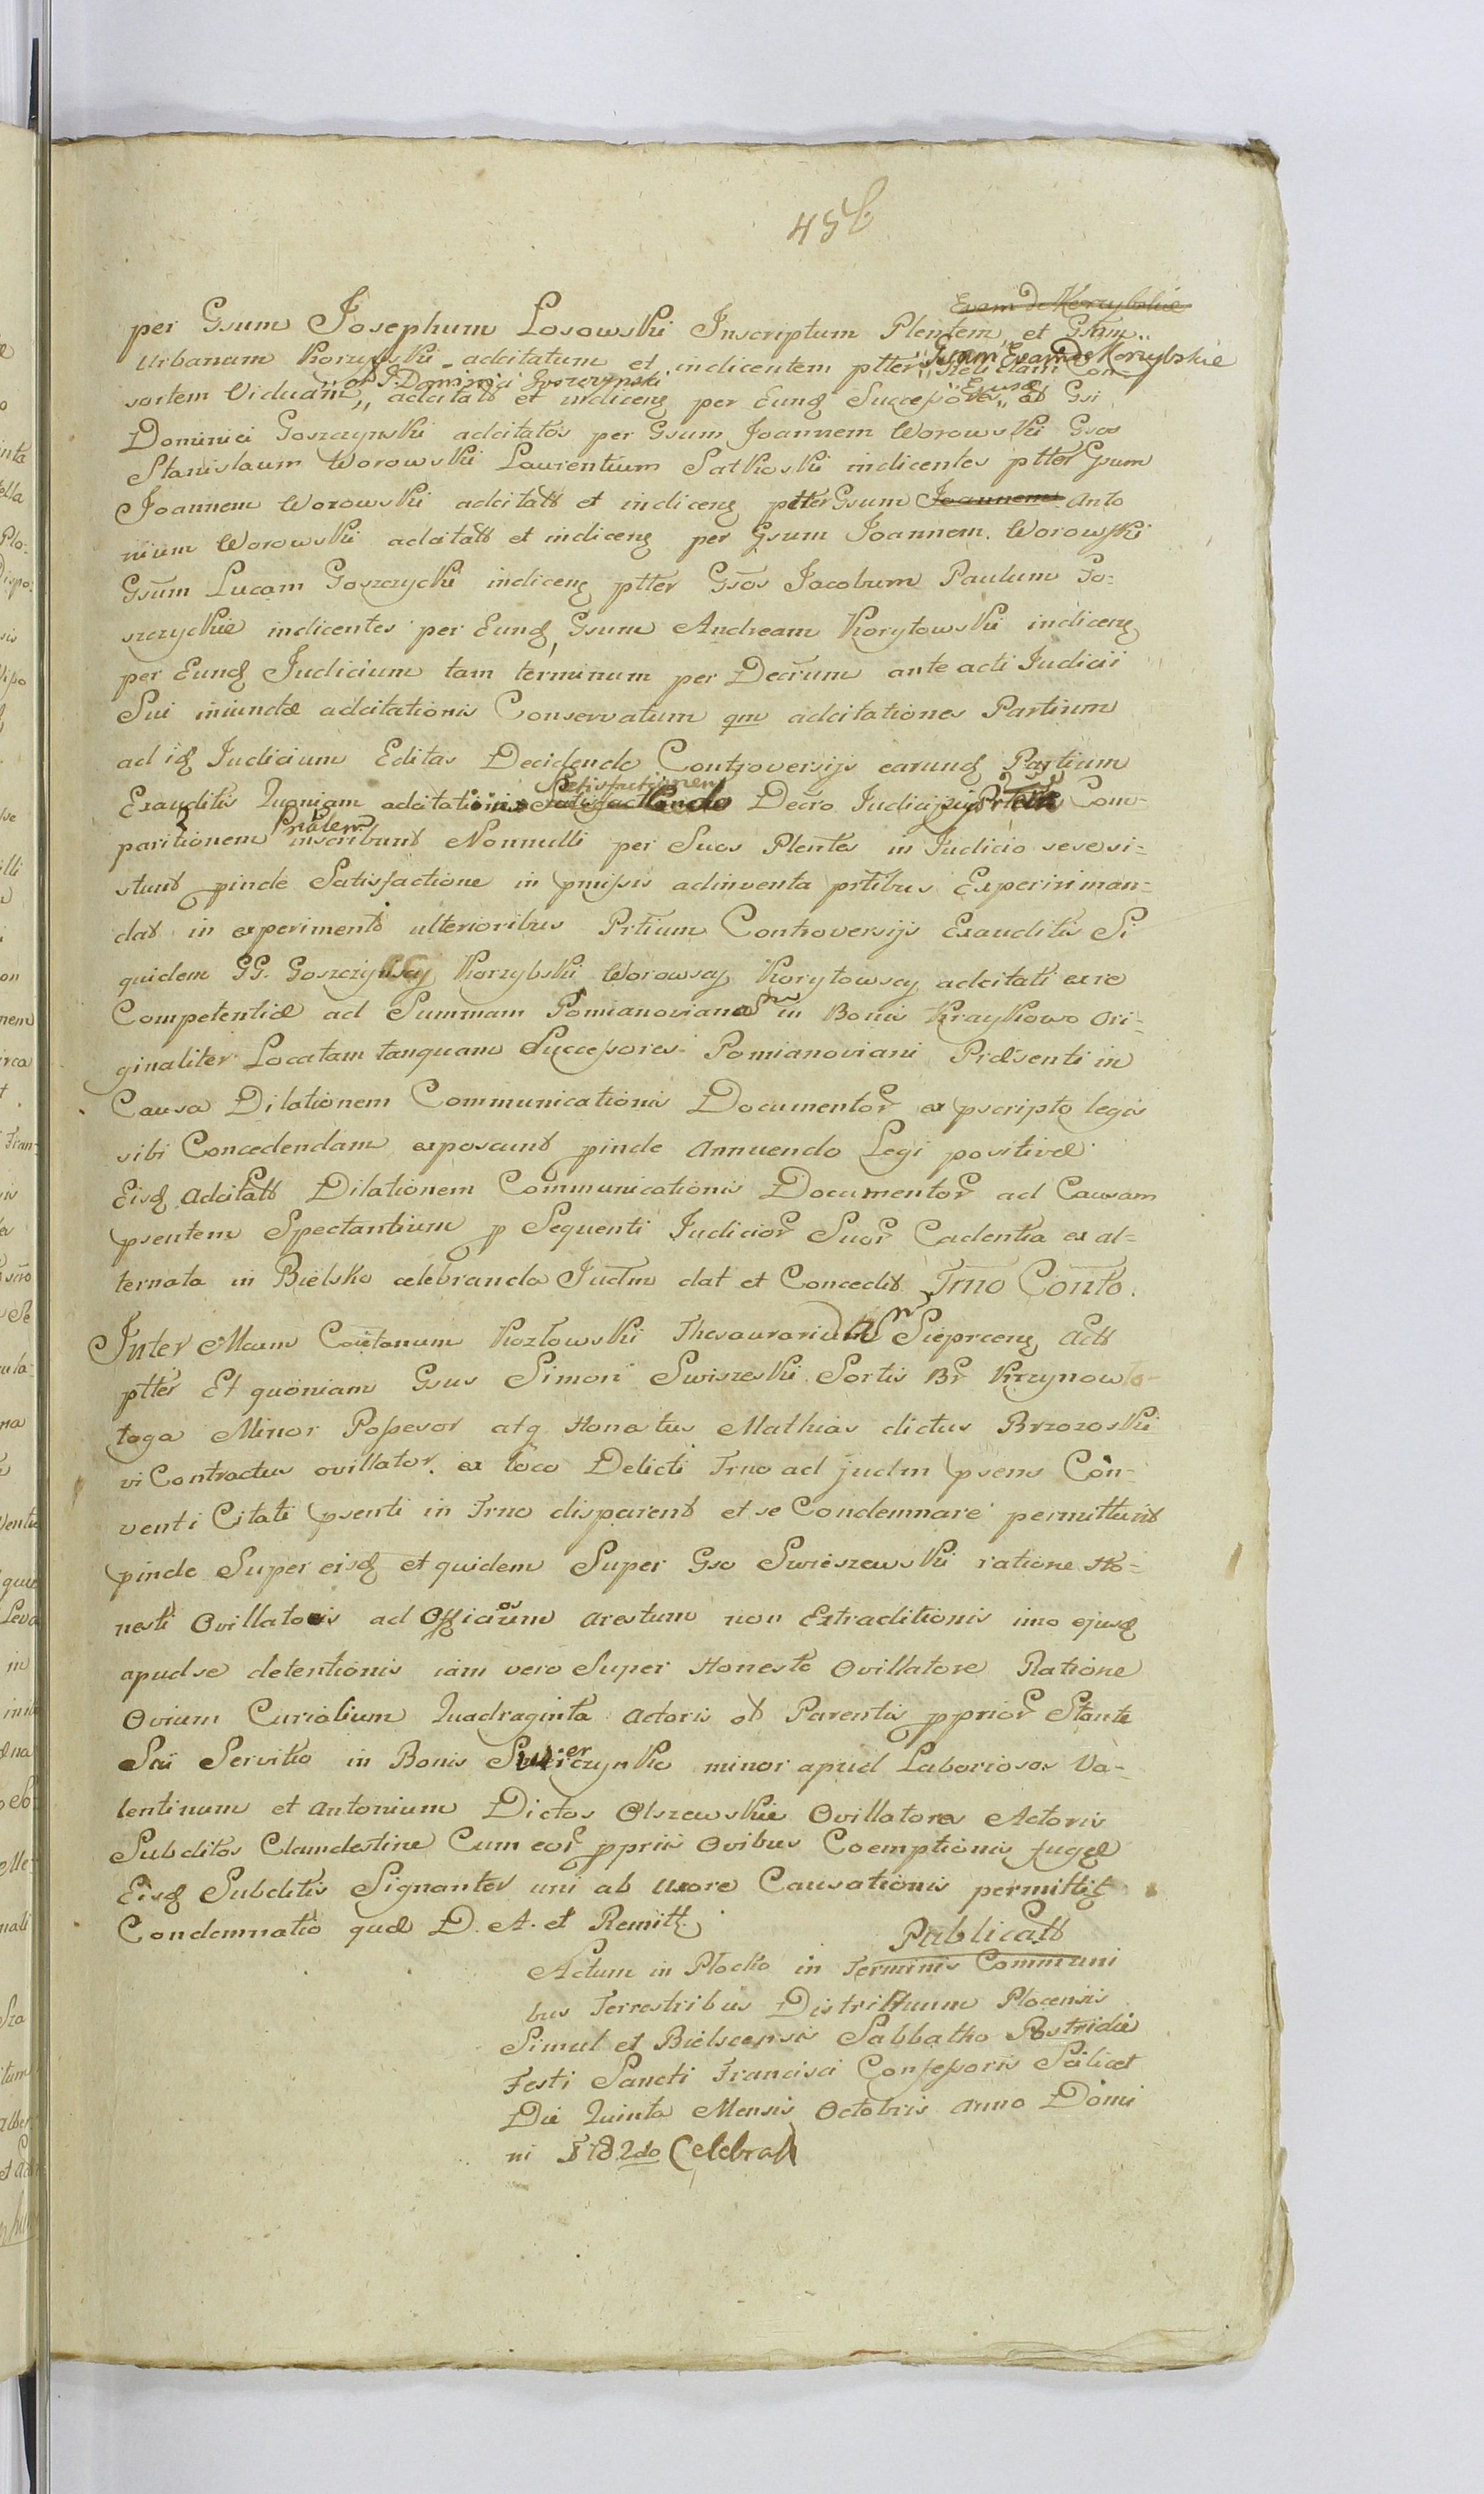 45b
Evam de Korzybskie
per Gsum Josephum Losowski Inscriptum Plentem et Gsum
Urbanum Korzybski adcitatum et indicentem ptter Gsam Evam de Korzybskie Relictam Con-
sortem Viduam olt G. Dominici Goszczynski adcitatt et indiceng per Eundq Successores Ejusdq olt Gsi
Dominici Goszczynski adcitatos per Gsum Joannem Worowski Gsos
Stanislaum Worowski Laurentium Satkoski indicentes ptter Gsum
Joannem Worowski adcitatt et indiceng ptter Gsum Joannem Anto
nium Worowski adcitatt et indiceng per Gsum Joannem Worowski
Gsum Lucam Goszczycki indiceng ptter Gsos Jacobum Paulum Go-
szczyckie indicentes per Eundq Gsum Andream Korytowski indiceng
per Eundq Judicium tam terminum per Decrum ante acti Judicii
Sui iniunctæ adcitationis Conservatum qm adcitationes Partium
ad idq Judicium Editas Decidendo Controversijs earundq Partium
Exauditis Quoniam adcitationis Satisfactionem Decro Judicij sui Com-
paritionem Pnalem inscribunt Nonnulli per Suos Plentes in Judicio sese si-
stunt pinde Satisfactione in pmissis adinventa prtibus Experiri man-
dat in experimento ulterioribus Prtium Controversijs Exauditis Si
quidem GG. Goszczynscy Korzybski Worowscy Korytowscy adcitati ex re
Competentiæ ad Summam Pomianovianam in Bonis Kraykowo Ori-
ginaliter Locatam tanquam Successores Pomianoviani Præsenti in
Causa Dilationem Communicationis Documentor ex pscripto legis
sibi Concedendam exposcunt pinde Annuendo Legi positivæ
Eisdq Adcitatt Dilationem Communicationis Documentor ad Causam
psentem Spectantium p Sequenti Judicior Suor Cadentia ex al-
ternata in Bielsko celebranda Judm dat et Concedit Trno Conto.
Inter Mcum Caietanum Kozlowski Thesaurarium Sieprceng Actt
ptter Et quoniam Gsus Simon Swiszeski Sortis Br Krzynowlo-
toga Minor Possesor atq Honestus Mathias dictus Brzozoski
vi Contractus ovillator ex loco Delicti Trno ad judm psens Con-
venti Citati psenti in Trno disparent et se Condemnare permittunt
pinde Super eisdq et quidem Super Gso Swieszewski ratione Ho-
nesti Ovillatoris ad Officiosum Arestum non Extraditionis imo ejusdq
apud se detentionis iam vero Super Honesto Ovillatore Ratione
Ovium Curialium Quadraginta Actoris olt Parentis pprior Stante
Sui Servitio in Bonis minor apud Laboriosos Va-
lentinum et Antonium Dictos Olszewskie Ovillatores Actoris
Subditos Clandestine Cum eor pprijs Ovibus Coemptionis fugæ
Eisdq Subditis Signanter uni ab Uxore Causationis permittit
Condemnatio quæ D. A. et Remitt.
Publicatt
Actum in Plocko in Terminis Communi
bus Terrestribus Districtuum Plocensis
Simul et Bielscensis Sabbatho Postridie
Festi Sancti Francisci Confessoris Scilicet
Die Quinta Mensis Octobris Anno Domi
ni 1782do Celebratt